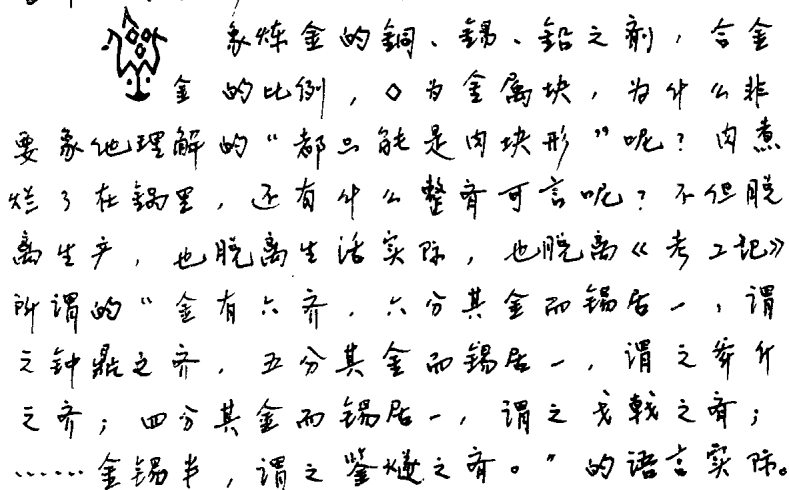 象炼金的铜、锡、铅之剂，合金
金的比例，◇为金属块，为什么非
要象他理解的“都只能是肉块形”呢？肉煮
烂了在锅里，还有什么整齐可言呢？不但脱
离生产，也脱离生活实际，也脱离《考工记》
所谓的“金有六齐．六分其金而锡居一，谓
之钟鼎之齐．五分其金而锡居一，谓之斧斤
之齐；四分其金而锡居一，谓之戈戟之齐；
……金锡半，谓之鉴燧之齐。”的语言实际。